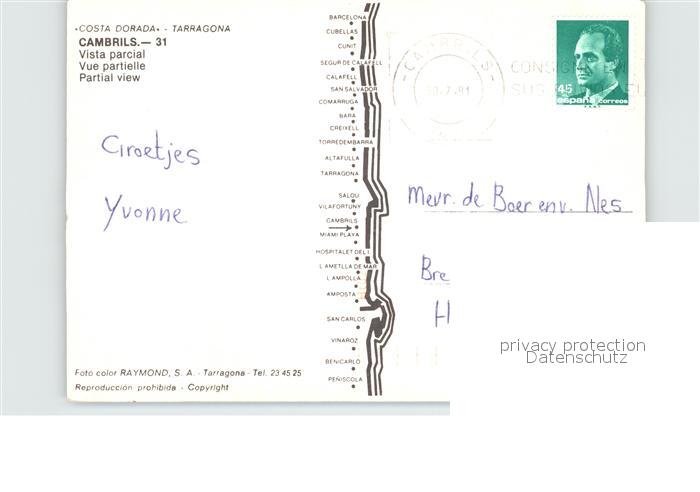 «COSTA DORADA» - TARRAGONA
CAMBRILS.— 31
Vista parcial
Vue partielle
Partial view
Groetjes
Yvonne
Foto color RAYMOND, S. A. - Tarragona - Tel. 23 45 25
Reproducción prohibida - Copyright
BARCELONA
CUBELLAS
CUNIT
SEGUR DE CALAFELL
CALAFELL
SAN SALVADOR
COMARRUGA
BARA
CREIXELL
TORREDEMBARRA
ALTAFULLA
TARRAGONA
SALOU
VILAFORTUNY
CAMBRILS
MIAMI PLAYA
HOSPITALET DEL I.
L AMETLLA DE MAR
L AMPOLLA
AMPOSTA
SAN CARLOS
VINAROZ
BENICARLO
PEÑISCOLA
-CAMBRILS-
30-7-91
CONSIGNE EN
SUS
45
españa correos
Mevr. de Boer env. Nes
Bre
H
privacy protection
Datenschutz